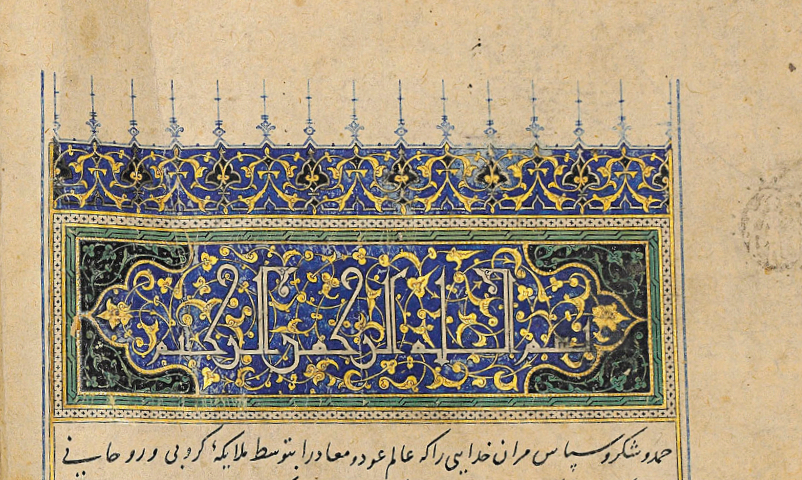 بسم الله الرحمن الرحیم
حمد و شکر و سپاس مران خدایی را که عالم عود و معاد را بتوسط ملایکهٔ کروبی و روحانی